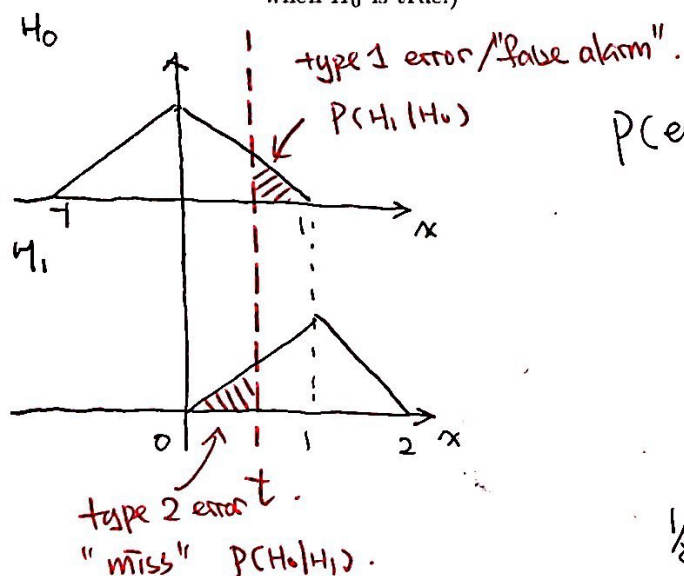 when H0 is true.)
H0
type 1 error/"false alarm".
P(H1|H0)
P(e
-1
1
x
H1
0
1
2
x
t.
type 2 error
"miss" P(H0|H1).